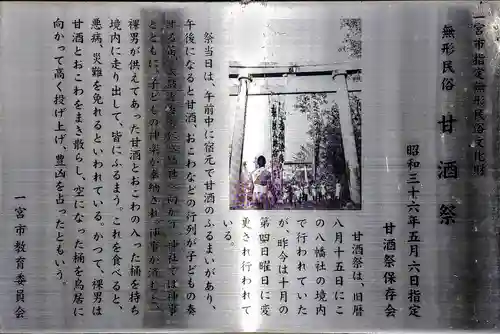 一宮市指定無形民俗文化財
無形民俗 甘酒祭
昭和三十六年五月六日指定
甘酒祭保存会
甘酒祭は、旧暦
八月十五日にこ
の八幡社の境内
で行われていた
が、昨今は十月の
第四日曜日に変
更され行われて
いる。
祭当日は、午前中に宿元で甘酒のふるまいがあり、
午後になると甘酒、おこわなどの行列が子どもの奏
とともに、子どもの神楽が奉納され、神事が済むと、
裸男が供えてあった甘酒とおこわの入った桶を持ち
境内に走り出して、皆にふるまう。これを食べると、
悪病、災難を免れるといわれている。かつて、裸男は
甘酒とおこわをまき散らし、空になった桶を鳥居に
向かって高く投げ上げ、豊凶を占ったともいう。
一宮市教育委員会